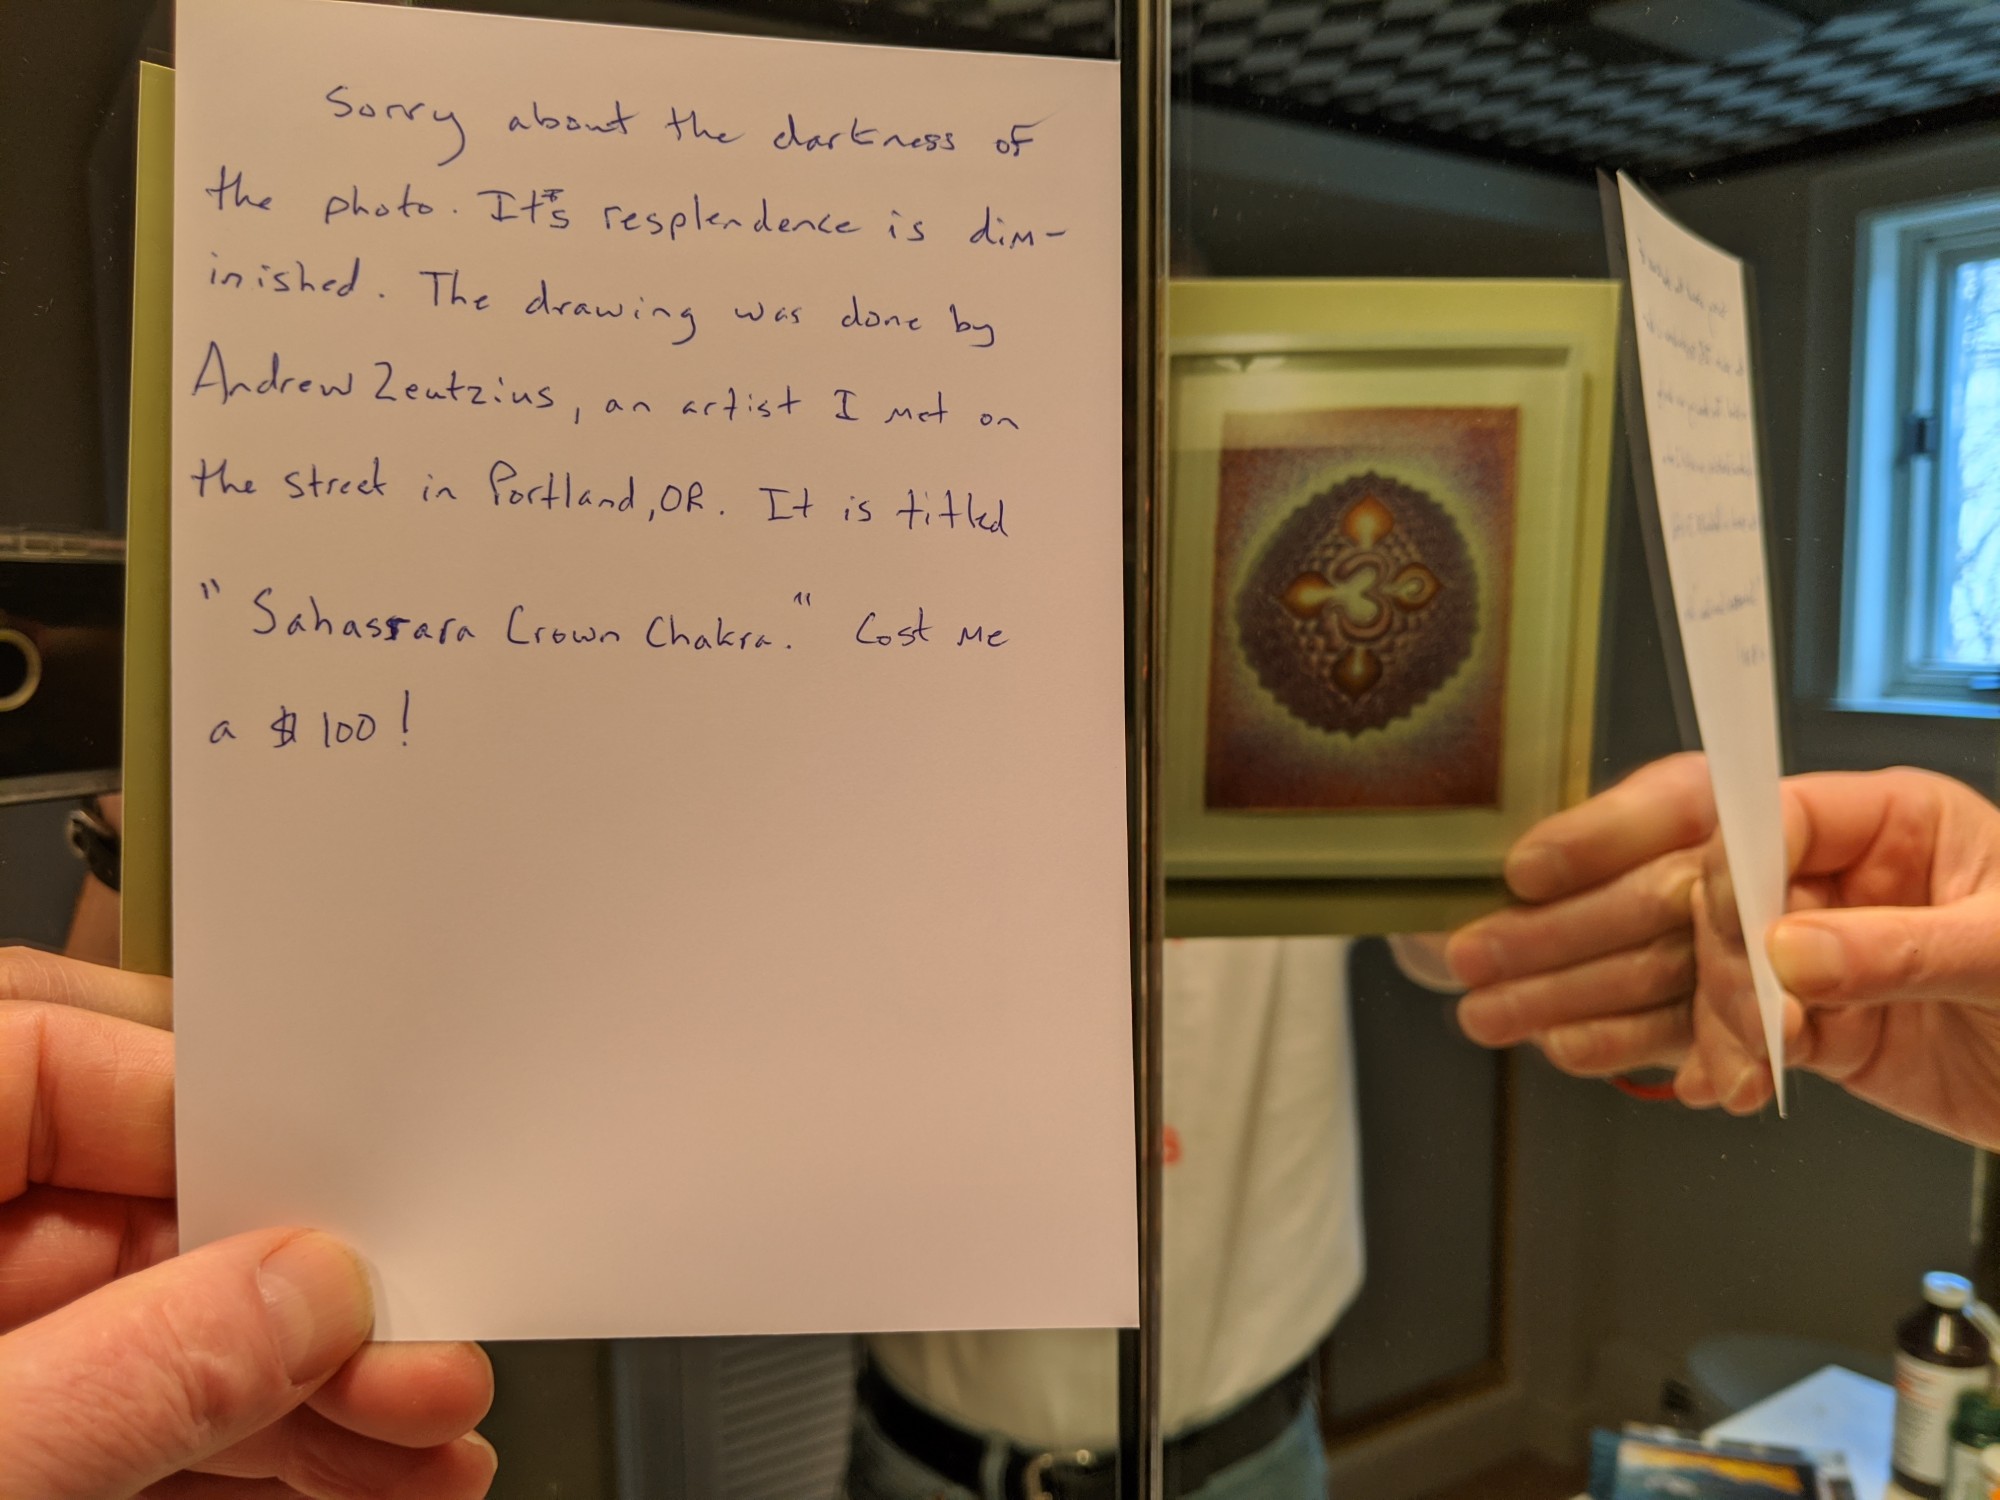 Sorry about the darkness of
the photo. It's resplendence is dim-
inished. The drawing was done by
Andrew Zeutzius, an artist I met on
the street in Portland, OR. It is titled
"Sahasrara Crown Chakra." Cost me
a $100!